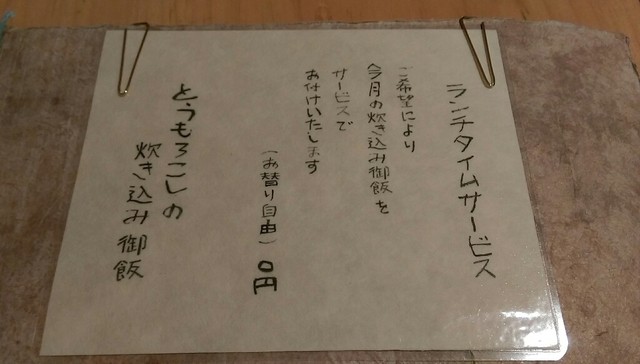 ランチタイムサービス
ご希望により
今月の炊き込み御飯を
サービスで
お付けいたします
(お替り自由) 0円
とうもろこしの
炊き込み御飯